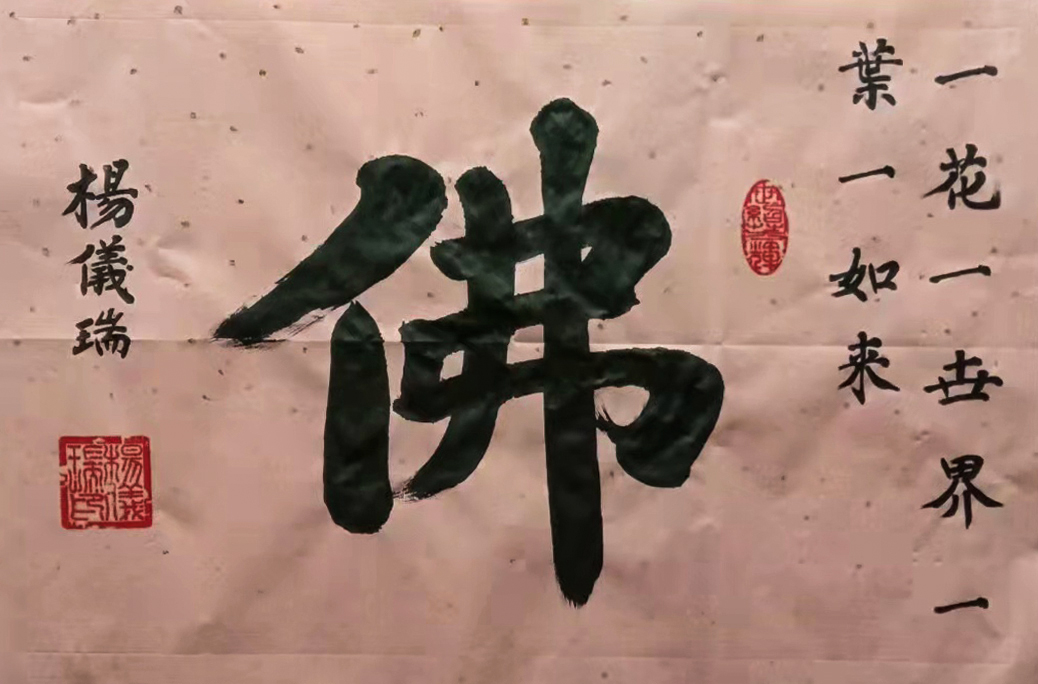 一花一世界一
葉一如来
佛
楊儀瑞
楊儀瑞印